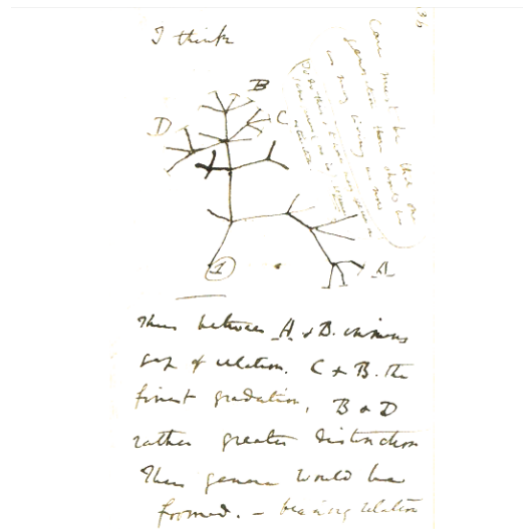 I think
Case must be that one
generation then should be
as many living as now
B
C
D
1
A
Thus between A & B. immense
gap of relation. C & B. the
finest gradation, B & D
rather greater distinction
Thus genera would be
formed. — bearing relation